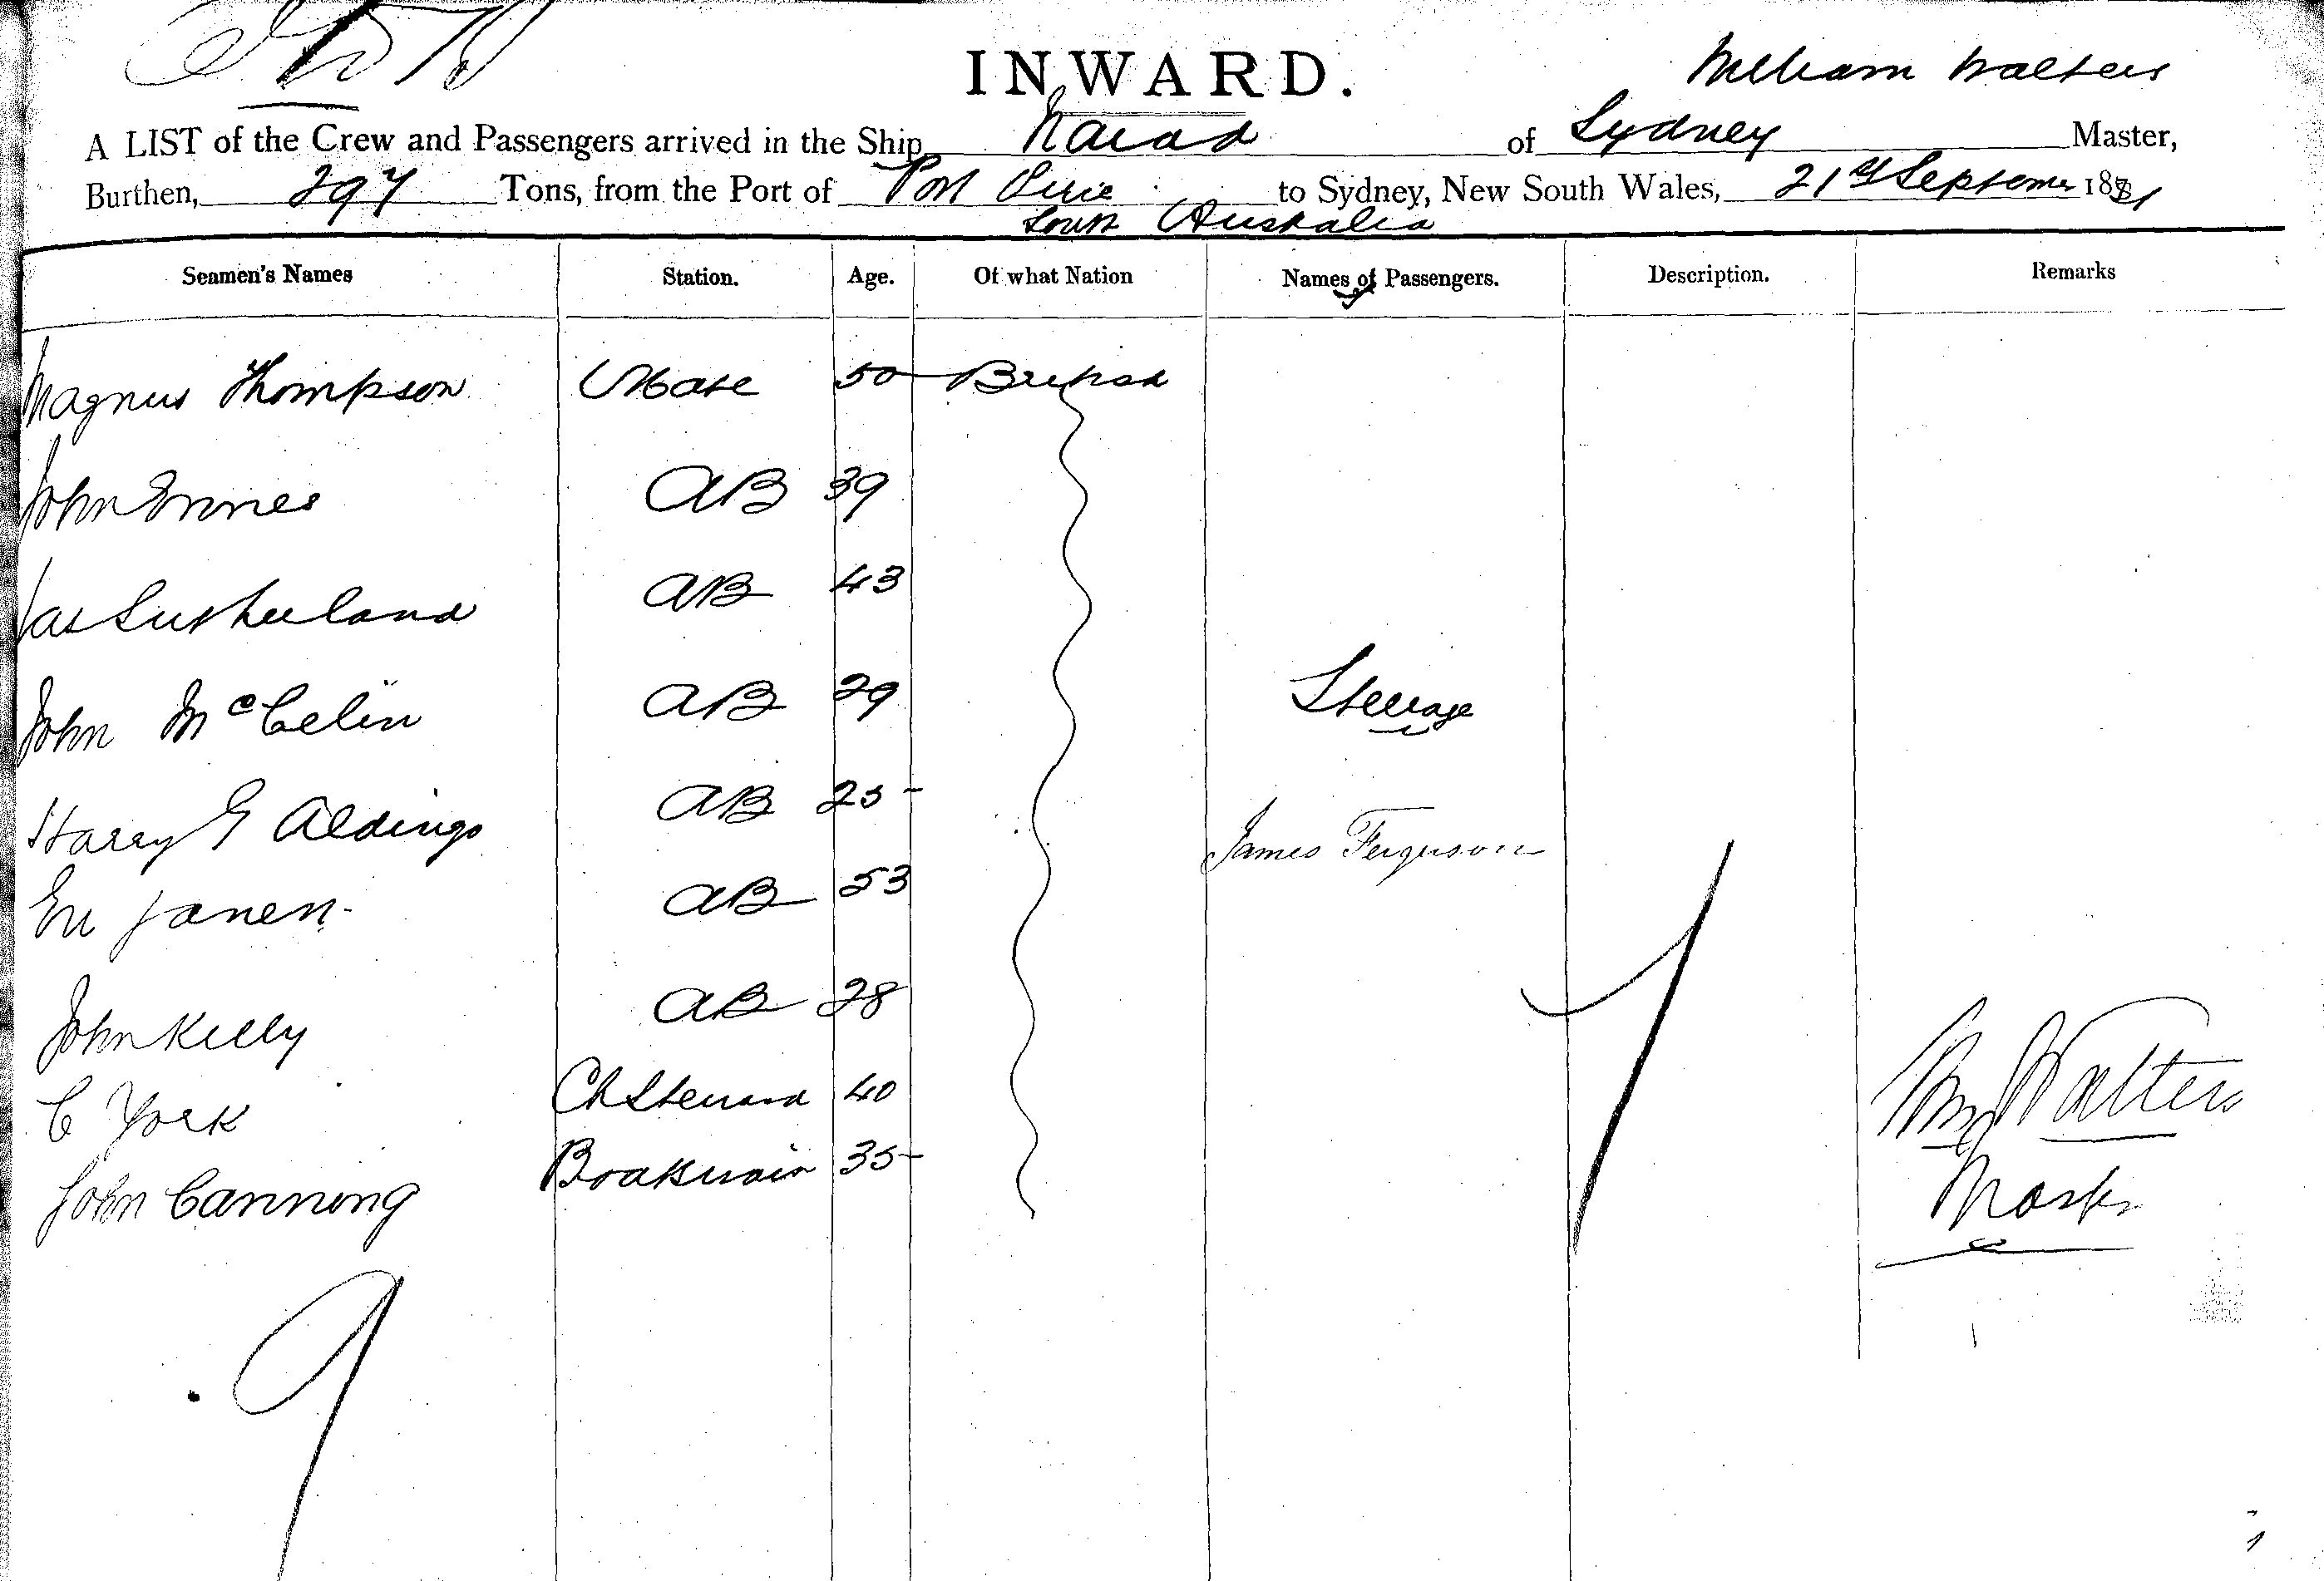 INWARD.
William Walters
A LIST of the Crew and Passengers arrived in the Ship Naiad of Sydney Master,
Burthen, 297 Tons, from the Port of Port Pirie to Sydney, New South Wales, 21st September 1881
South Australia
Seamen's Names Station. Age. Of what Nation Names of Passengers. Description. Remarks
Magnus Thompson Mate 50 British
John Innes AB 39
Jas Sutherland AB 43
John McCelin AB 29
Steerage
Harry G Aldings AB 25
James Ferguson
Jansen AB 53
John Kelly AB 28
C York Ch Steward 40
Wm Walters
John Canning Boatswain 35
Master
9
1